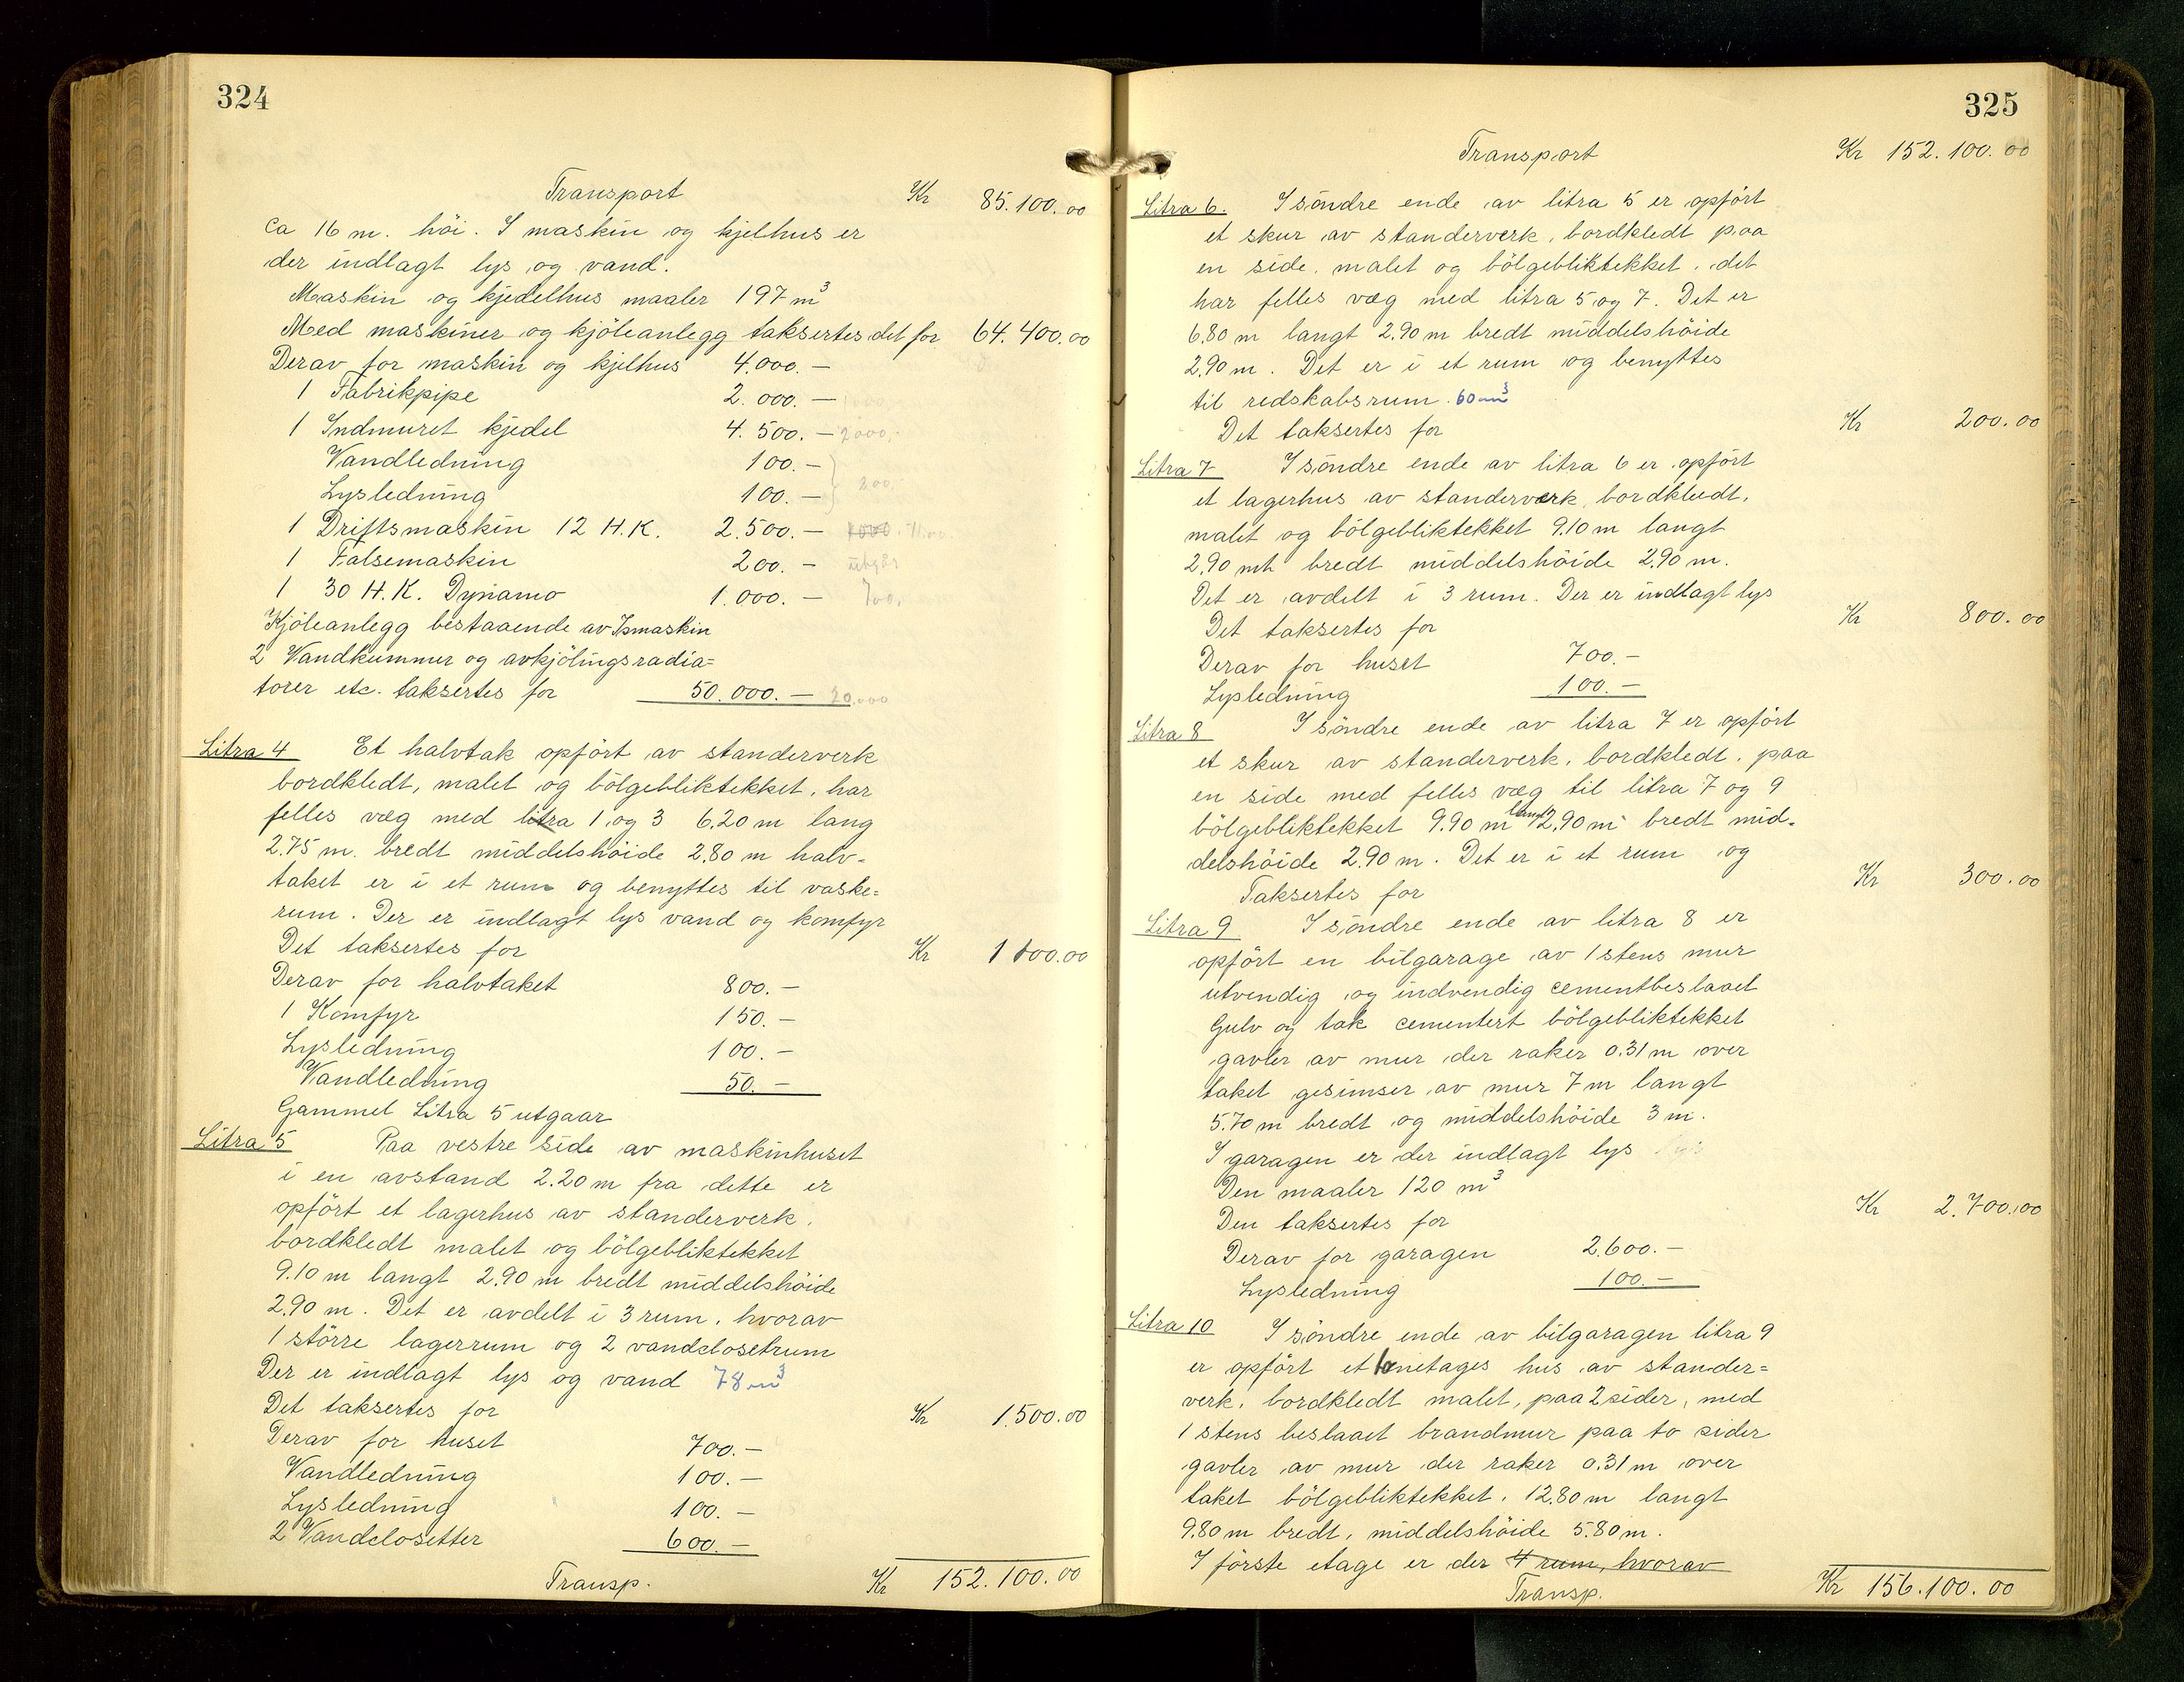 324
Transport Kr 85.100.00
Ca 16 m. höi. I maskin og kjelhus er
der indlagt lys og vand.
Maskin og kjedelhus maaler 197 m3
Med maskiner og kjöleanlegg taksertes det for 64.400.00
Derav for maskin og kjelhus 4.000.—
1 Fabrikpipe 2.000.—
1 Indmuret kjedel 4.500.— 2000.-
Vandledning 100.—
Lysledning 100.— 200.-
1 Driftsmaskin 12 H.K. 2.500.—
1 Falsemaskin 200.— utgår
1 30 H.K. Dynamo 1.000.— 700.
Kjöleanlegg bestaaende av Ismaskin
2 Vandkummer og avkjölingsradia=
torer etc. taksertes for 50.000.— 20.000
Litra 4 Et halvtak opfört av standerverk
bordkledt, malet og bölgebliktekket, har
felles væg med litra 1 og 3 6,20 m lang
2.75 m. bredt middelshöide 2.80 m halv=
taket er i et rum og benyttes til vaske=
rum. Der er indlagt lys vand og komfyr
Det taksertes for Kr 1100.00
Derav for halvtaket 800.—
1 Komfyr 150.—
Lysledning 100.—
Vandledning 50.—
Gammel Litra 5 utgaar
Litra 5 Paa vestre side av maskinhuset
i en avstand 2.20 m fra dette er
opfört et lagerhus av standerverk,
bordkledt malet og bölgebliktekket
9.10 m langt 2.90 m bredt middelshöide
2.90 m. Det er avdelt i 3 rum, hvorav
1 större lagerrum og 2 vandclosetrum
Der er indlagt lys og vand 78 m3
Det taksertes for Kr 1.500.00
Derav for huset 700.—
Vandledning 100.—
Lysledning 100.—
2 Vandclosetter 600.—
Transp. Kr 152.100.00
325
Transport Kr 152.100.00
Litra 6. I söndre ende av litra 5 er opfört
et skur av standerverk, bordkledt paa
en side, malet og bölgebliktekket, det
har felles væg med litra 5 og 7. Det er
6.80 m langt 2.90 m bredt middelshöide
2.90 m. Det er i et rum og benyttes
til redskabsrum. 60 m3
Det taksertes for Kr 200.00
Litra 7 I söndre ende av litra 6 er opfört
et lagerhus av standerverk, bordkledt,
malet og bölgebliktekket 9.10 m langt
2.90 mt bredt middelshöide 2.90 m.
Det er avdelt i 3 rum. Der er indlagt lys
Det taksertes for Kr 800.00
Derav for huset 700.—
Lysledning 100.—
Litra 8 I söndre ende av litra 7 er opfört
et skur av standerverk, bordkledt, paa
en side med felles væg til litra 7 og 9
bölgebliktekket 9.90 m langt 2.90 m bredt mid-
delshöide 2.90 m. Det er i et rum og
Taksertes for Kr 300.00
Litra 9 I söndre ende av litra 8 er
opfört en bilgarage av 1 stens mur
utvendig og indvendig cementbeslaaet
Gulv og tak cementert bölgebliktekket
gavler av mur der raker 0.31 m over
taket gesimser av mur 7 m langt
5.70 m bredt og middelshöide 3 m.
I garagen er der indlagt lys
Den maaler 120 m3
Den taksertes for Kr 2.700.00
Derav for garagen 2.600.—
Lysledning 100.—
Litra 10 I söndre ende av bilgaragen litra 9
er opfört et enetages hus av stander=
verk, bordkledt malet, paa 2 sider, med
1 stens beslaaet brandmur paa to sider
gavler av mur der raker 0.31 m over
taket bölgebliktekket, 12.80 m langt
9.80 m bredt, middelshöide 5.80 m.
I förste etage er der 4 rum, hvorav
Transp. Kr 156.100.00